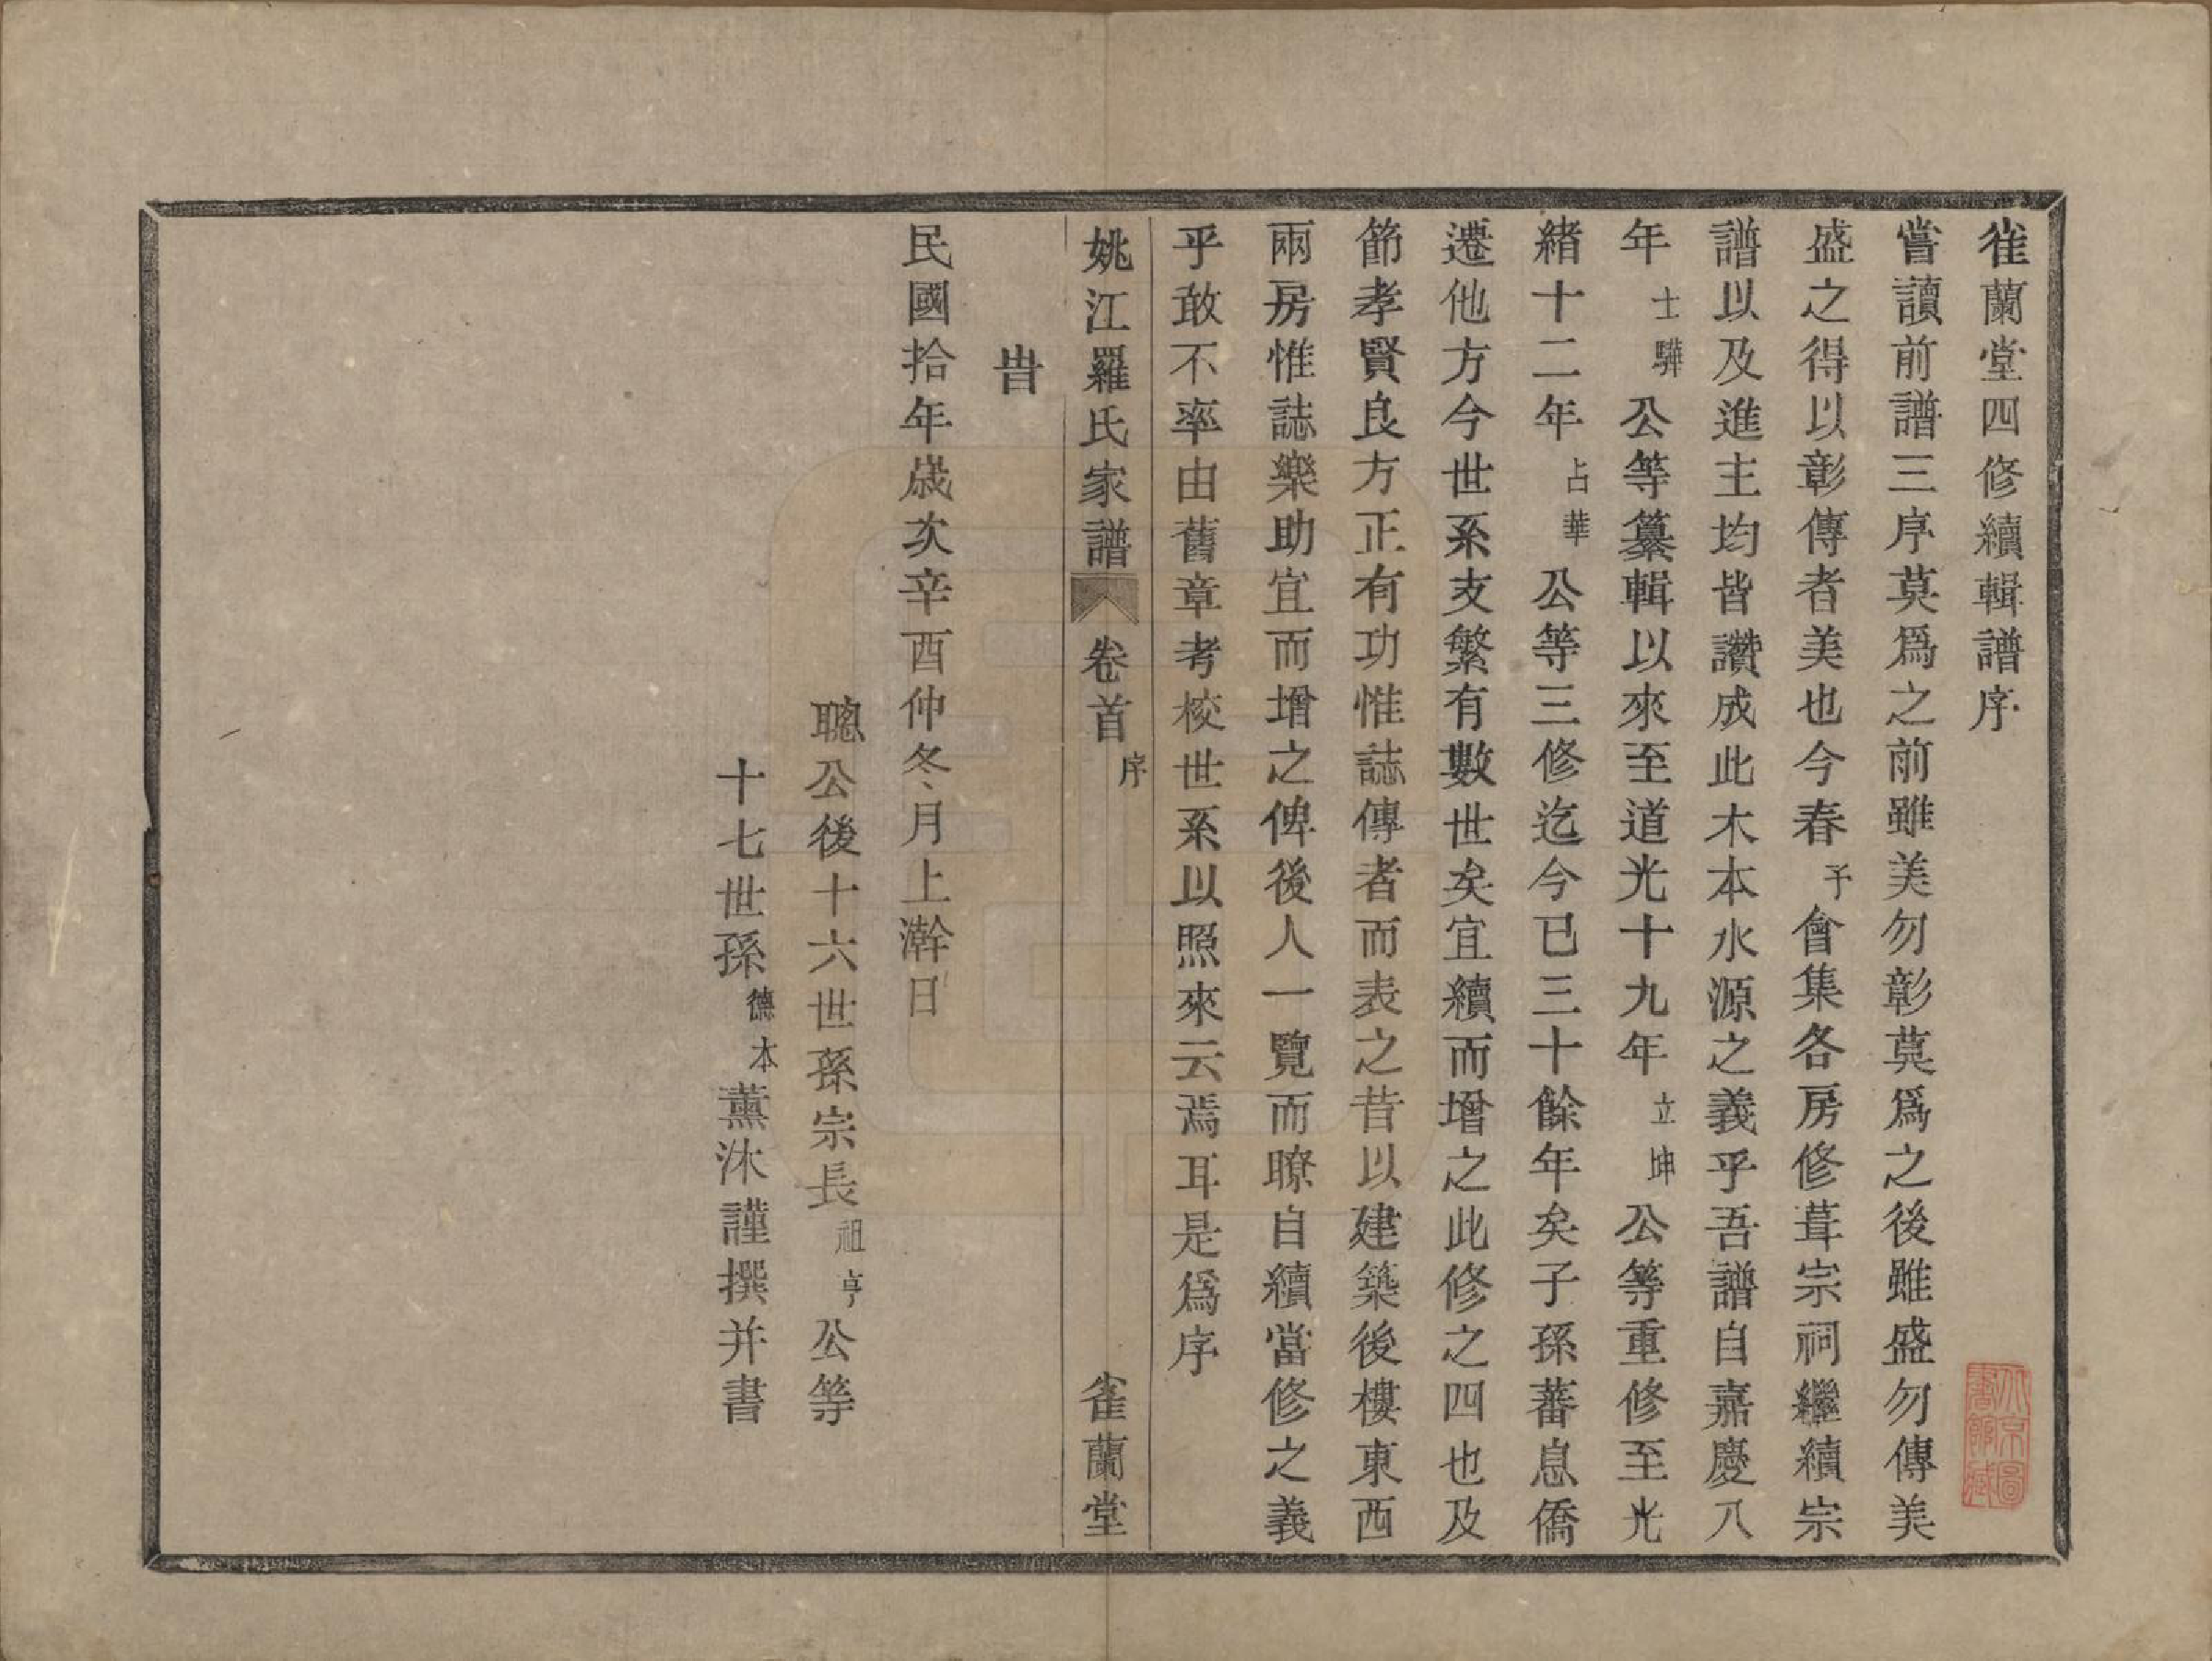 雀蘭堂四修續輯譜序
嘗讀前譜三序莫爲之前雖美勿彰莫爲之後雖盛勿傳美
盛之得以彰傳者美也今春予會集各房修葺宗祠繼續宗
譜以及進主均皆讚成此木本水源之義乎吾譜自嘉慶八
年士驊公等纂輯以來至道光十九年立坤公等重修至光
緒十二年占華公等三修迄今已三十餘年矣子孫蕃息僑
遷他方今世系支繁有數世矣宜續而增之此修之四也及
節孝賢良方正有功惟誌傳者而表之昔以建築後樓東西
兩房惟誌樂助宜而增之俾後人一覽而瞭自續當修之義
乎敢不率由舊章考校世系以照來云焉耳是爲序
姚江羅氏家譜 卷首 序 雀蘭堂
旹
民國拾年歲次辛酉仲冬月上澣日
聰公後十六世孫宗長祖亨公等
十七世孫德本薰沐謹撰并書
北京圖書館藏